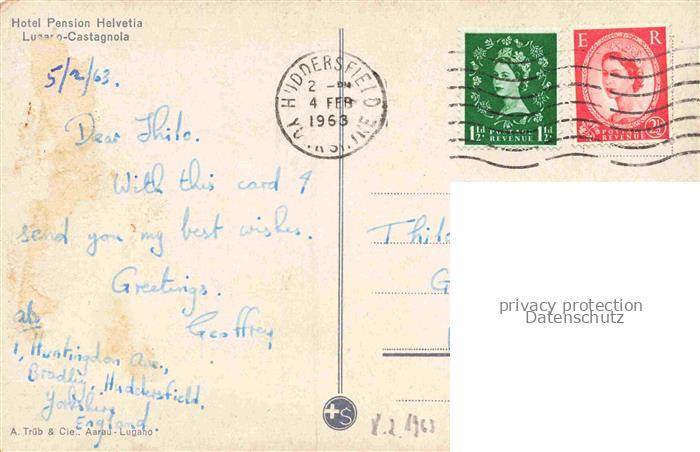 Hotel Pension Helvetia
Lugano-Castagnola
5/2/63.
Dear Thilo.
With this card I
send you my best wishes.
Greetings.
Geoffrey
1, Huntingdon Ave.,
Bradley, Huddersfield,
Yorkshire,
England.
A. Trüb & Cie., Aarau-Lugano
HUDDERSFIELD
2 - PM
4 FEB
1963
YORKSHIRE
1½d POSTAGE 1½d
REVENUE
E R
POSTAGE 2½d
REVENUE
Thilo
G
+S
V.2.1963
privacy protection
Datenschutz